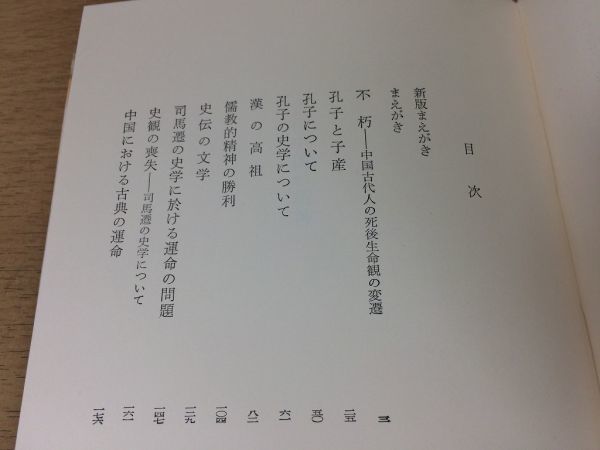 目次
新版まえがき
まえがき
不朽――中国古代人の死後生命観の変遷 三
孔子と子産 二五
孔子について 五〇
孔子の史学について 六一
漢の高祖 八二
儒教的精神の勝利 一〇四
史伝の文学 一二九
司馬遷の史学に於ける運命の問題 一四七
史観の喪失――司馬遷の史学について 一六一
中国における古典の運命 一七六